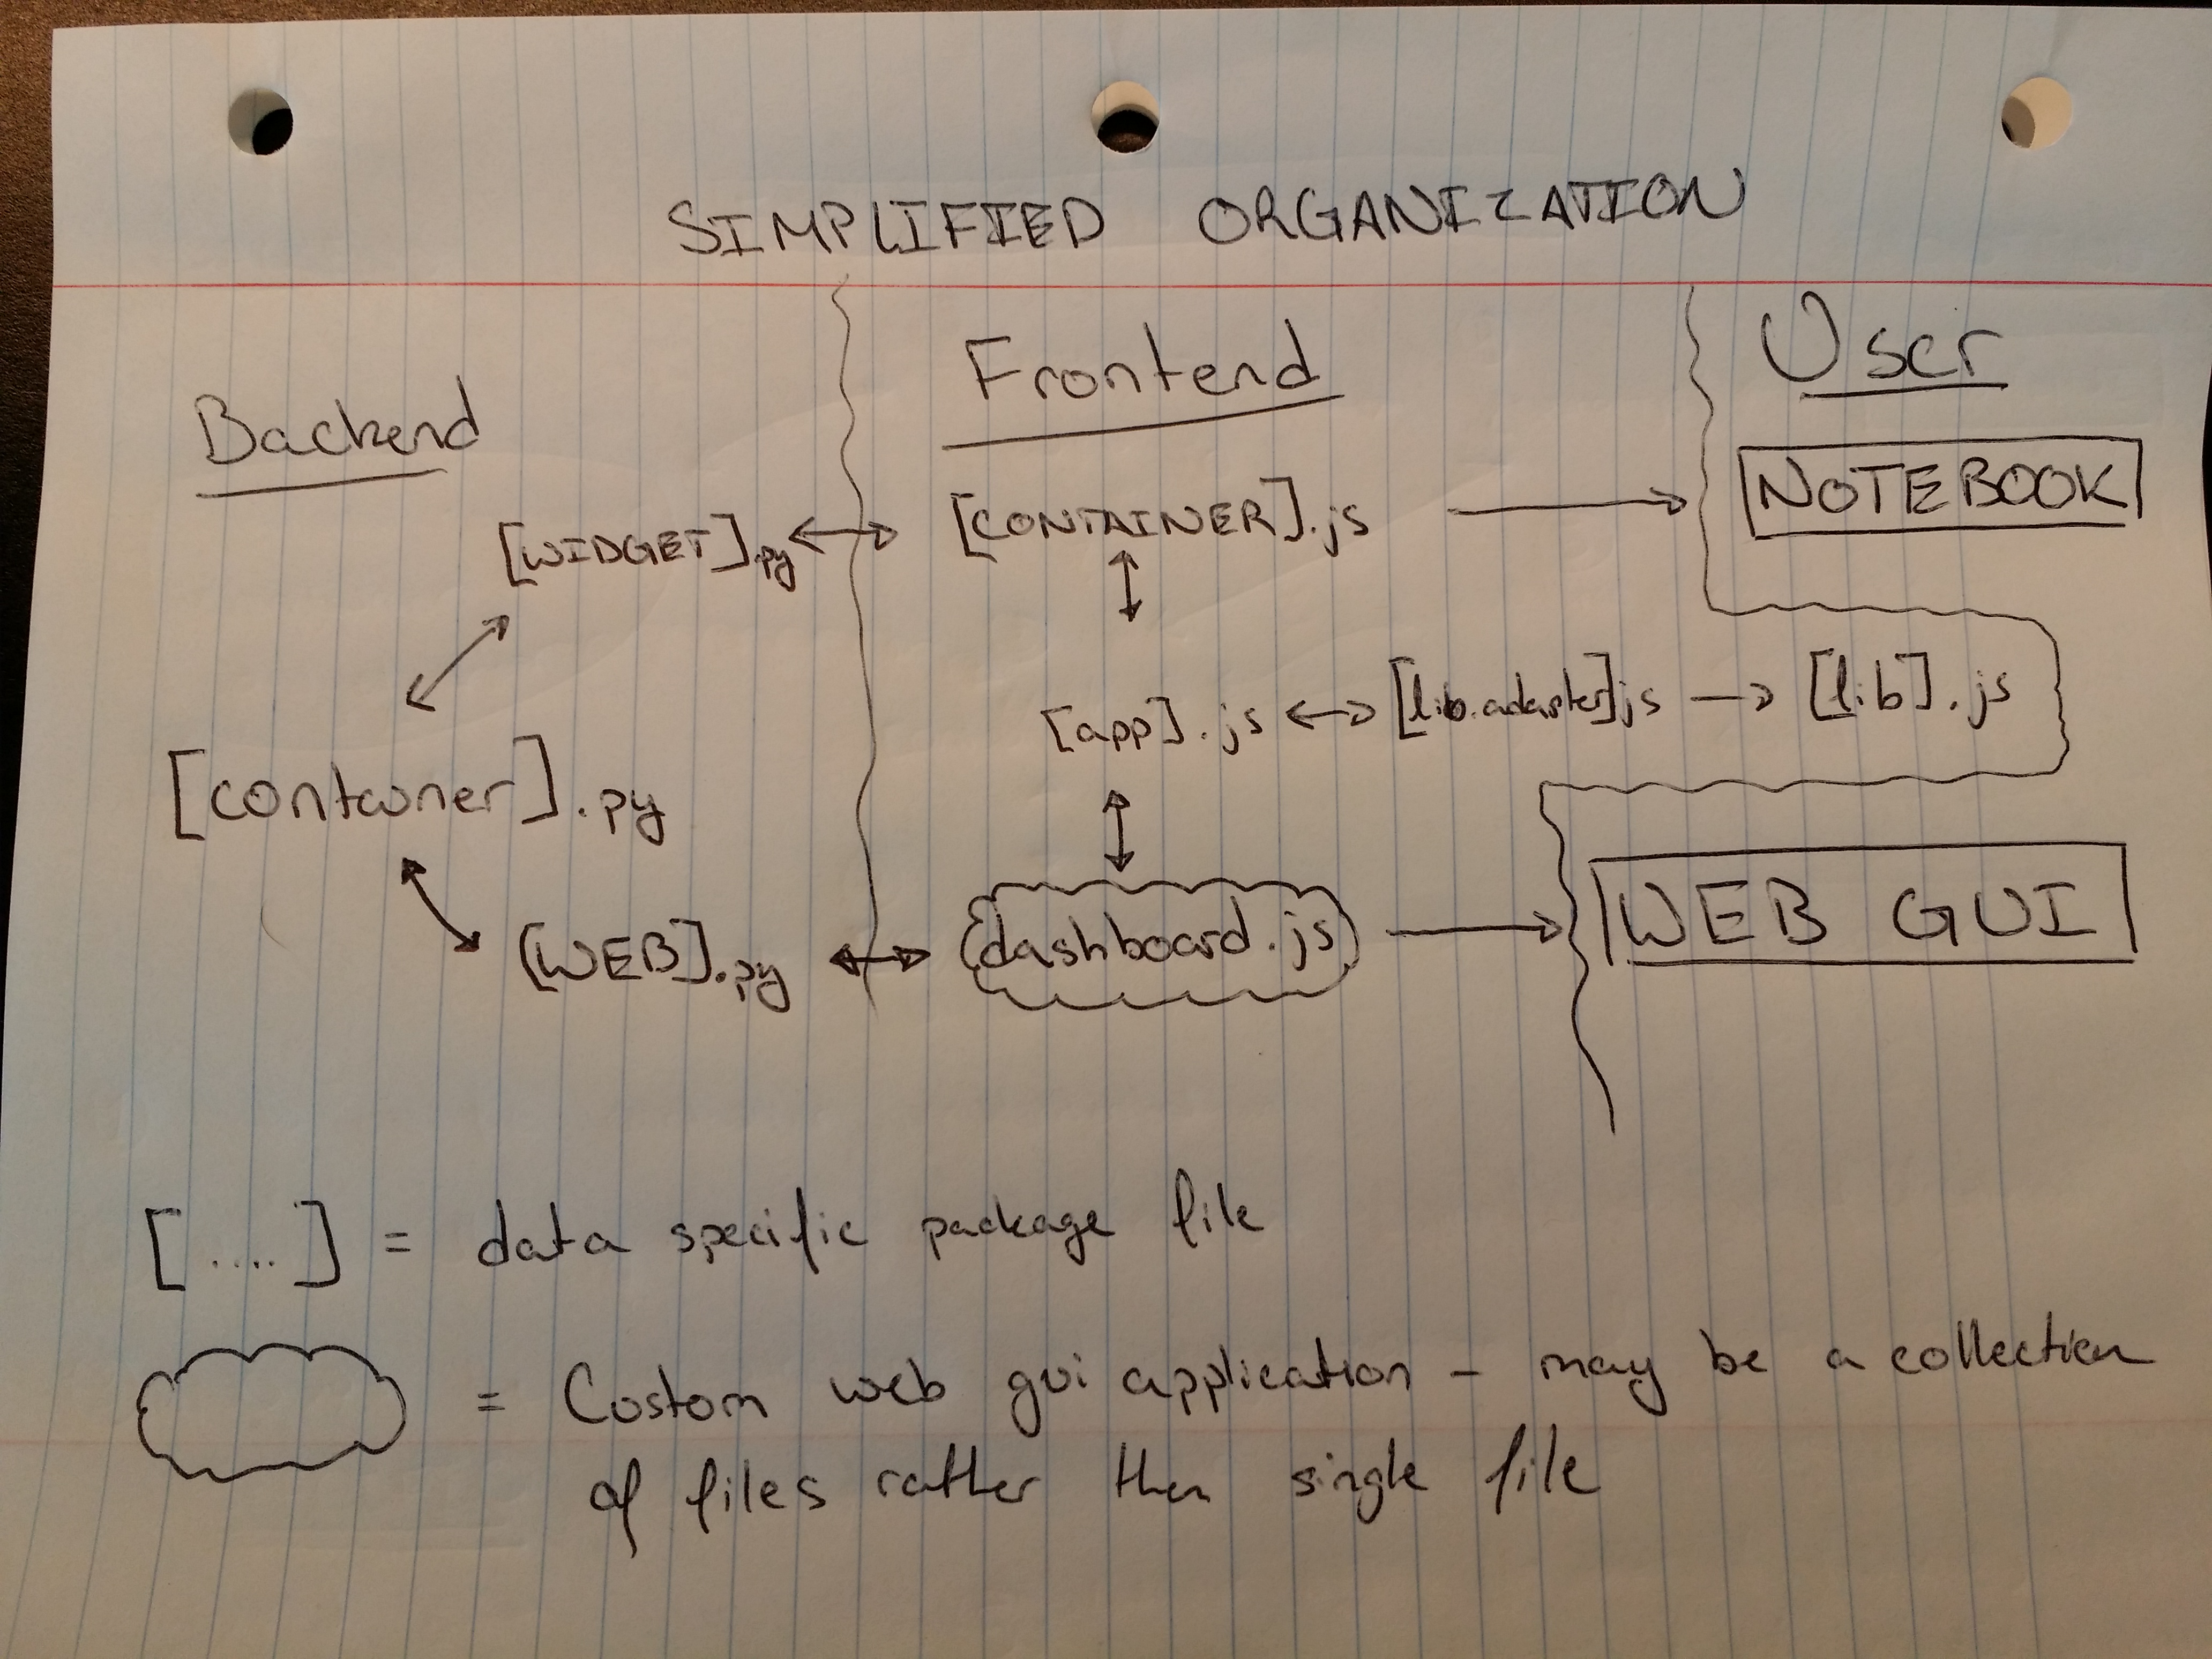 SIMPLIFIED ORGANIZATION
Backend
Frontend
User
[WIDGET].py
[CONTAINER].js
NOTEBOOK
[container].py
[app].js
[lib.adapter]js
[lib].js
[WEB].py
dashboard.js
WEB GUI
[.....] = data specific package file
= Custom web gui application - may be a collection
of files rather then single file